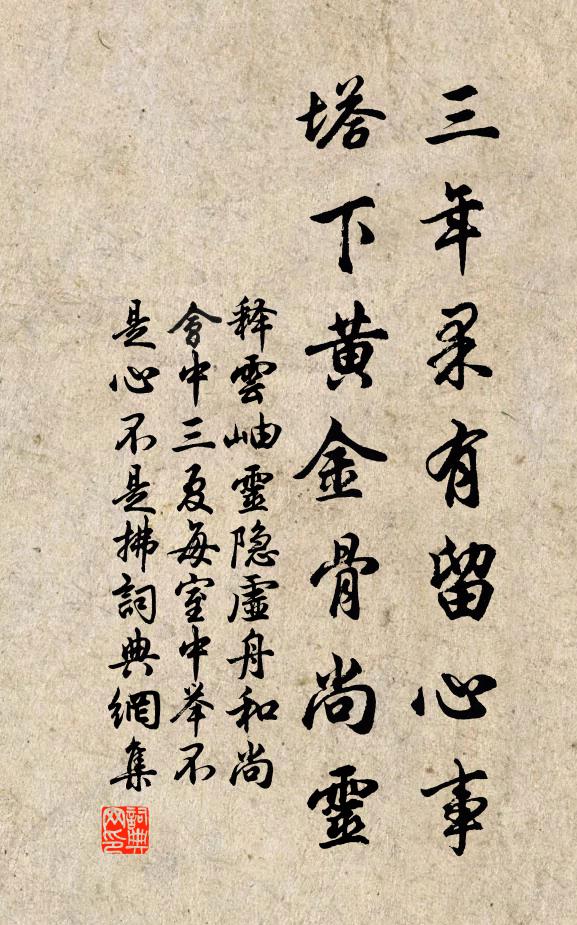 三年果有留心事
塔下黄金骨尚靈
释雲岫靈隐虛舟和尚
會中三夏每室中举不
是心不是拂詞典網集
詞典
网印